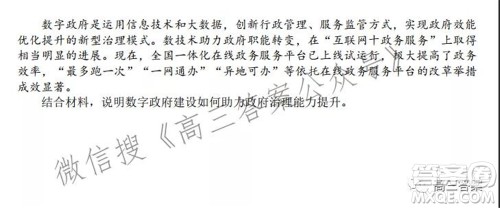 数字政府是运用信息技术和大数据，创新行政管理、服务监管方式，实现政府效能
优化提升的新型治理模式。数技术助力政府职能转变，在“互联网十政务服务”上取得
相当明显的进展。现在，全国一体化在线政务服务平台已上线试运行，极大提高了政务
效率，“最多跑一次”“一网通办”“异地可办”等依托在线政务服务平台的改革举措
成效显著。
结合材料，说明数字政府建设如何助力政府治理能力提升。
微信搜《高三答案公众号》
高三答案